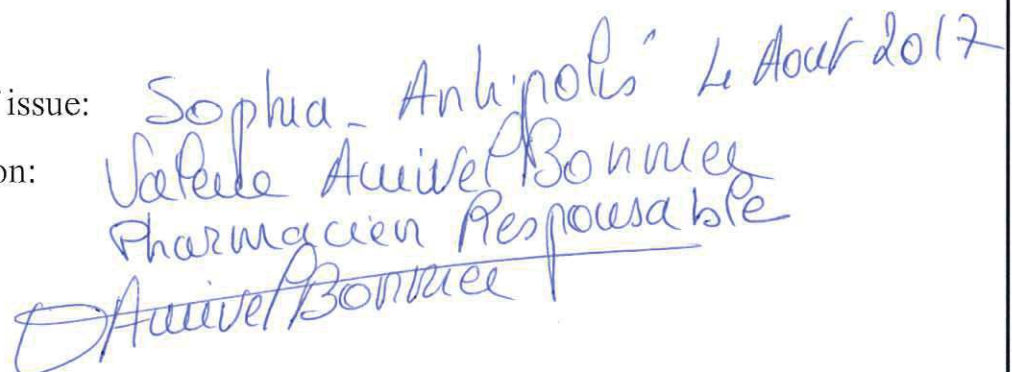 issue: Sophia-Antipolis 4 Aout 2017
on: Valerie Bonnier
Pharmacien Responsable
Bonnier